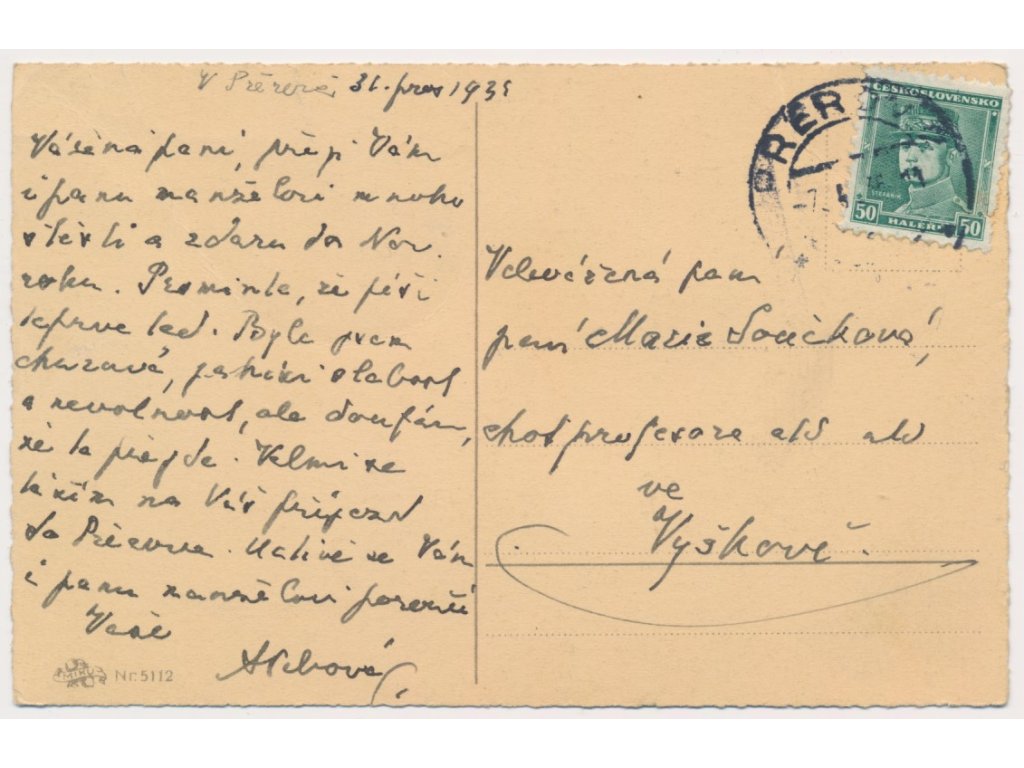 V Přerově, 31. pros 193
Vážená paní, přeji Vám
i panu manželovi mnoho
štěstí a zdaru do Nov.
roku. Prominte, že píši
teprve teď. Byla jsem
churavá, jakási slabost
a nevolnost, ale doufám,
že to přejde. Velmi se
těším na Váš příjezd
do Přerova. Uctivě se Vám
i panu manželovi poroučí
Vaše
Nr. 5112
PŘEROV
ČESKOSLOVENSKO
ŠTEFÁNIK
50 HALÉŘŮ 50
Velevážená paní
paní Marie Součková,
choť profesora atd atd
ve
Vyškově.